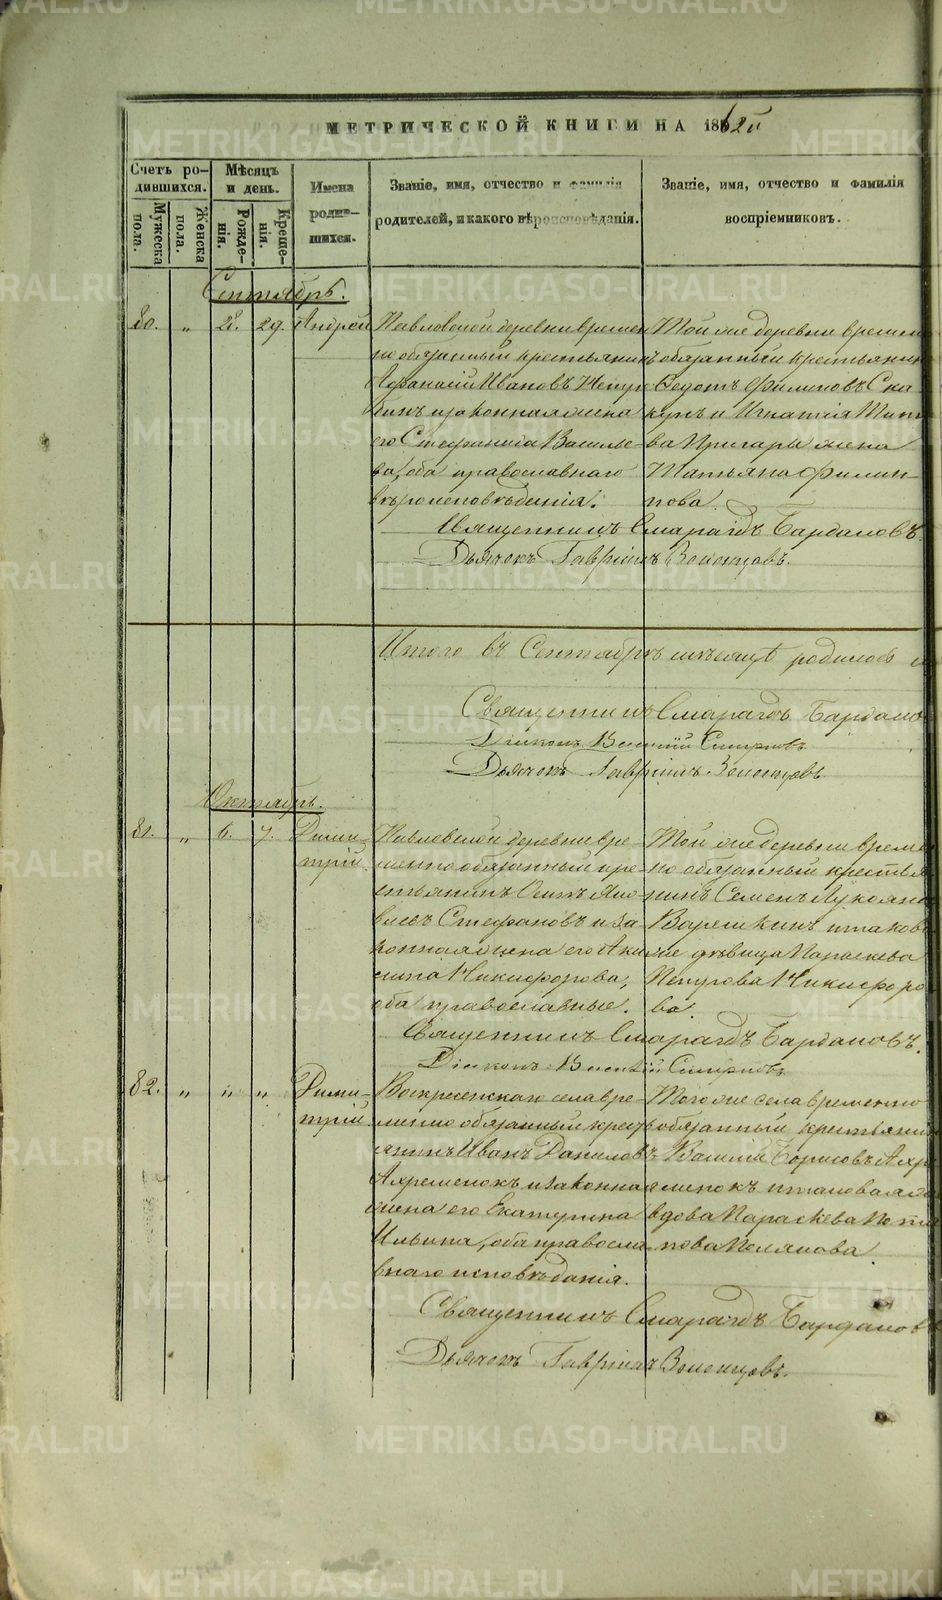 МЕТРИЧЕСКОЙ КНИГИ НА 1862й
Счетъ ро-
дившихся.
Мужеска
пола.
Женска
пола.
Мѣсяцъ
и день.
Рожде-
нія.
Креще-
нія.
Имена
родив-
шихся.
Званіе, имя, отчество и фамилія
родителей, и какого вѣроисповѣданія.
Званіе, имя, отчество и фамилія
воспріемниковъ.
Сентябрь.
80. " 28. 29. Андрей
Павловской деревни времен
но обязанный крестьянинъ
Афанасій Ивановъ
и законная жена
его Стефанида Василье
ва, оба православнаго
вѣроисповѣданія.
Той же деревни времен
обязанный крестьянин
Федотъ Филиповъ Ска
купъ и Игнатія
жена
Татьяна Филип-
пова.
Священникъ Смарагдъ Бардановъ
Дьячокъ Гавріилъ
Итого въ Сентябрѣ мѣсяцѣ родилось
Священникъ Смарагдъ Бардано
Діаконъ Василій Смирновъ
Дьячокъ Гавріилъ
Октябрь.
81. " 6. 7. Дими-
трій
Павловской деревни вре-
менно обязанный кре-
стьянинъ Осипъ Яко-
влевъ Стефановъ и за
конная жена его Аки
лина Никифорова,
оба православные.
Той же деревни времен
но обязанный крестья
нинъ Семенъ Лукояно
и тако
же дѣвица Параскева
Никифоро
ва.
Священникъ Смарагдъ Бардановъ.
Діаконъ Василій Смирновъ
82. " " " Дими-
трій
Воскресенскаго села вре-
менно обязанный кресть
янинъ Иванъ Даниловъ
Ахременокъ и законная
жена его Екатерина
Ильина, оба правосла
внаго исповѣданія.
Того же села временно
обязанный крестьяни
Василій Борисовъ Ахре
менокъ и таковая же
вдова Параскева
Полякова
Священникъ Смарагдъ Бардановъ
Дьячокъ Гавріилъ
METRIKI.GASO-URAL.RU